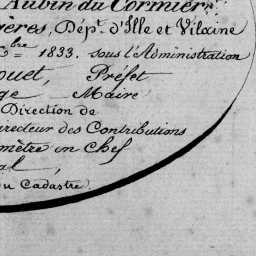 Aubin du Cormier
ères, Dépt. d'Ille et Vilaine
bre 1833. sous l'Administration
ouet, Préfet
ge Maire
Direction de
irecteur des Contributions
mètre en Chef
al,
du Cadastre.